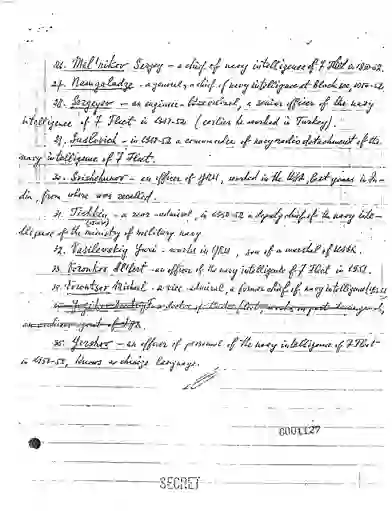 26. Mel'nikov Sergey – a chief of navy intelligence of 7 Fleet in 1950-52.
27. Namgaladze – a general, a chief of navy intelligence at Black sea, 1950-52.
28. Sergeyev – an engineer- a senior officer of the navy
intelligence of 7 Fleet in 1951-52 (earlier he worked in Turkey).
29. – in 1951-52 a commander of navy radio detachment of the
navy intelligence of 7 Fleet.
30. – an officer of GRU, worked in the USA, last years in In-
dia, from where was recalled.
31. Tishkin – a rear-admiral, in 1950-52 a deputy chief of the navy inte-
lligence of the ministry of military navy
32. Vasilevskiy Yuri – works in GRU, son of a marshal of USSR.
33. Voronkov Albert – an officer of the navy intelligence of 7 Fleet in 1951.
34. Vorontsov Mikhail – a vice-admiral, a former chief of navy intelligence
35. Yershov – an officer of personnel of the navy intelligence of 7 Fleet
in 1951-52, knows a chinese language.
0001127
SECRET